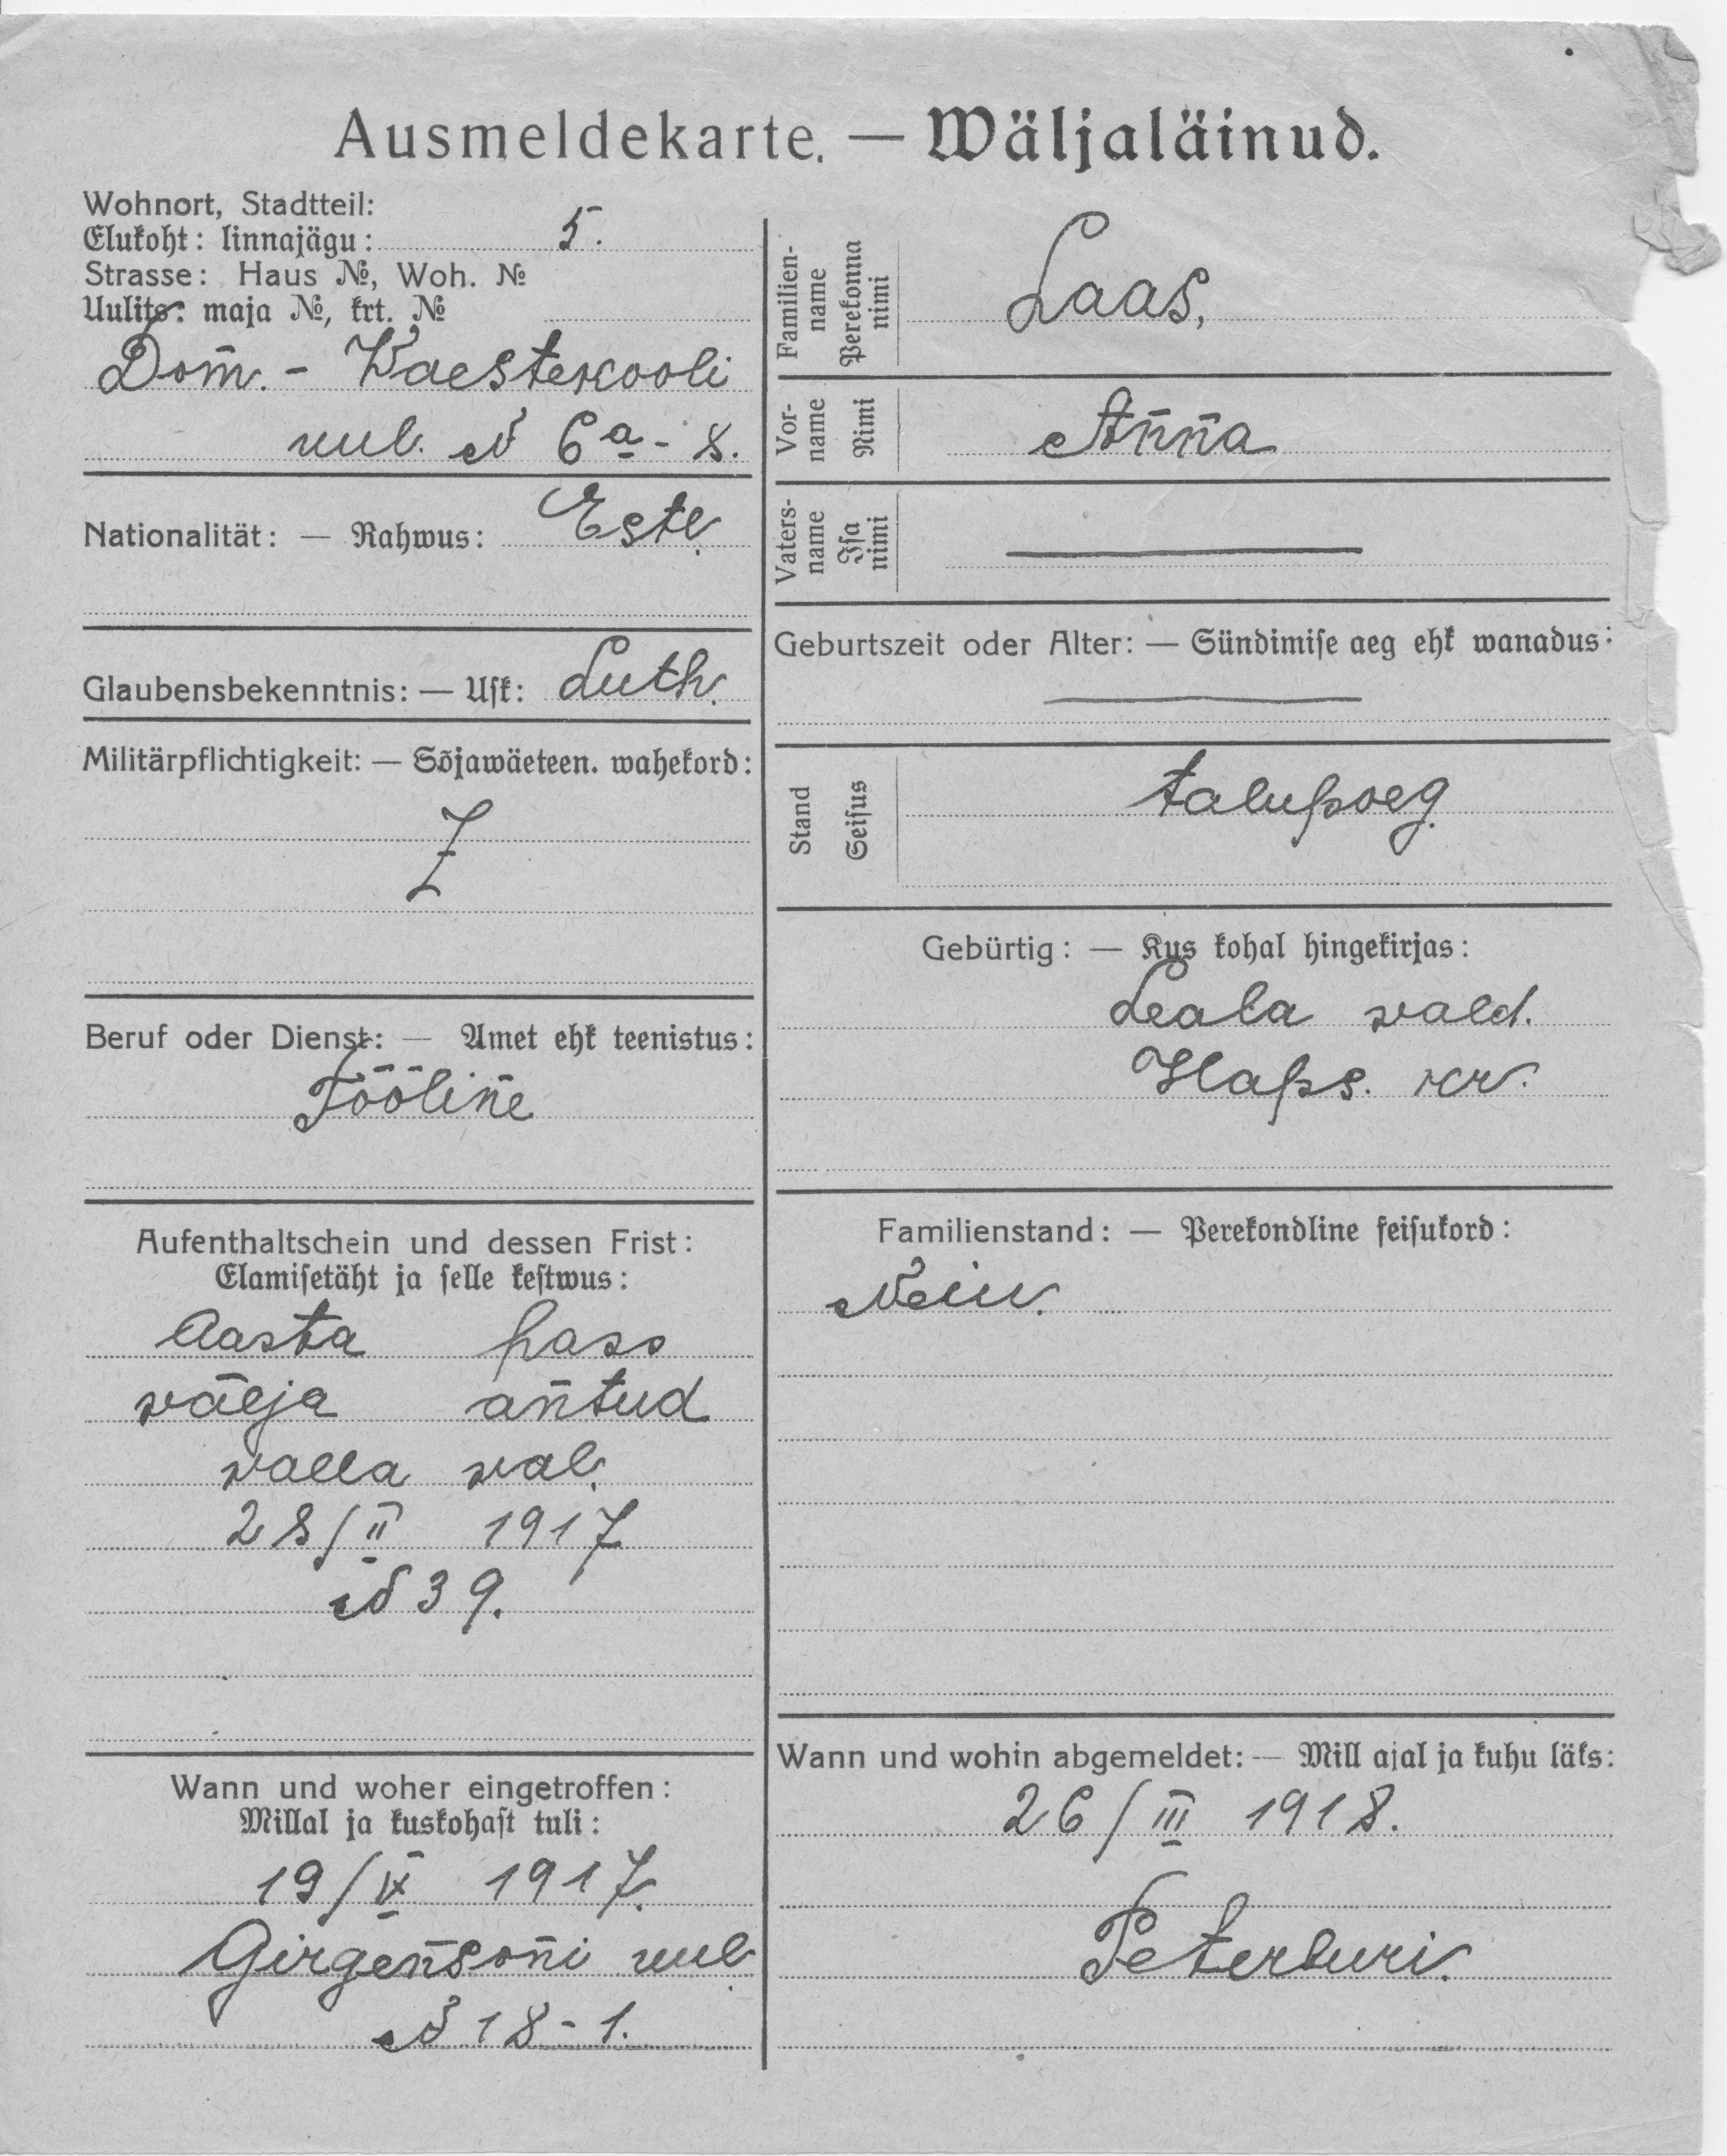 Ausmeldekarte. — Wäljaläinud.
Wohnort, Stadtteil:
Elukoht: linnajägu: 5.
Strasse: Haus №, Woh. №
Uulits: maja №, krt. №
Dom̄. - Waestekooli
uul. № 6a - 8.
Nationalität: — Rahwus: Este.
Glaubensbekenntnis: — Usk: Luth.
Militärpflichtigkeit: — Sõjawäeteen. wahekord:
Beruf oder Dienst: — Amet ehk teenistus:
Töölin̄e
Aufenthaltschein und dessen Frist:
Elamisetäht ja selle kestwus:
Aasta pass
wälja an̄tud
walla wal.
28/II 1917
№ 39.
Wann und woher eingetroffen:
Millal ja kuskohast tuli:
19/IX 1917.
Girgen̄son̄i uul.
№ 18-1.
Familien-
name
Perekonna
nimi
Laas,
Vor-
name
Nimi
An̄n̄a
Vaters-
name
Isa
nimi
Geburtszeit oder Alter: — Sündimise aeg ehk wanadus:
Stand
Seisus
talupoeg.
Gebürtig: — Kus kohal hingekirjas:
Leala wald.
Haps. kr.
Familienstand: — Perekondline seisukord:
Neiu.
Wann und wohin abgemeldet: — Mill ajal ja kuhu läks:
26/III 1918.
Peterburi.